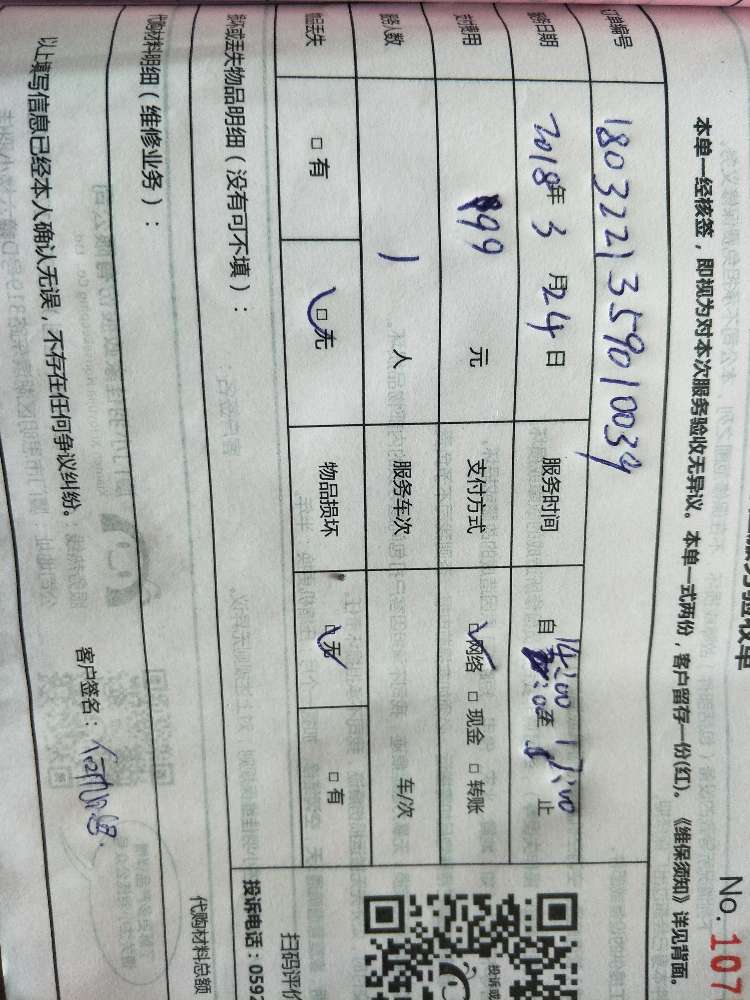 No. 107
本单一经核签，即视为对本次服务验收无异议。本单一式两份，客户留存一份(红)。《维保须知》详见背面。
订单编号 1803221359010039
服务日期 2018年3月24日 服务时间 自 14:00 至 17:00 止
支付费用 199 元 支付方式 □网络 □现金 □转账
服务人数 1 人 服务车次 车/次
物品丢失 □有 □无 物品损坏 □无 □有
损坏或丢失物品明细（没有可不填）：
投诉电话：0592
扫码评价
投诉或
代购材料明细（维修业务）：
代购材料总额
以上填写信息已经本人确认无误，不存在任何争议纠纷。
客户签名：